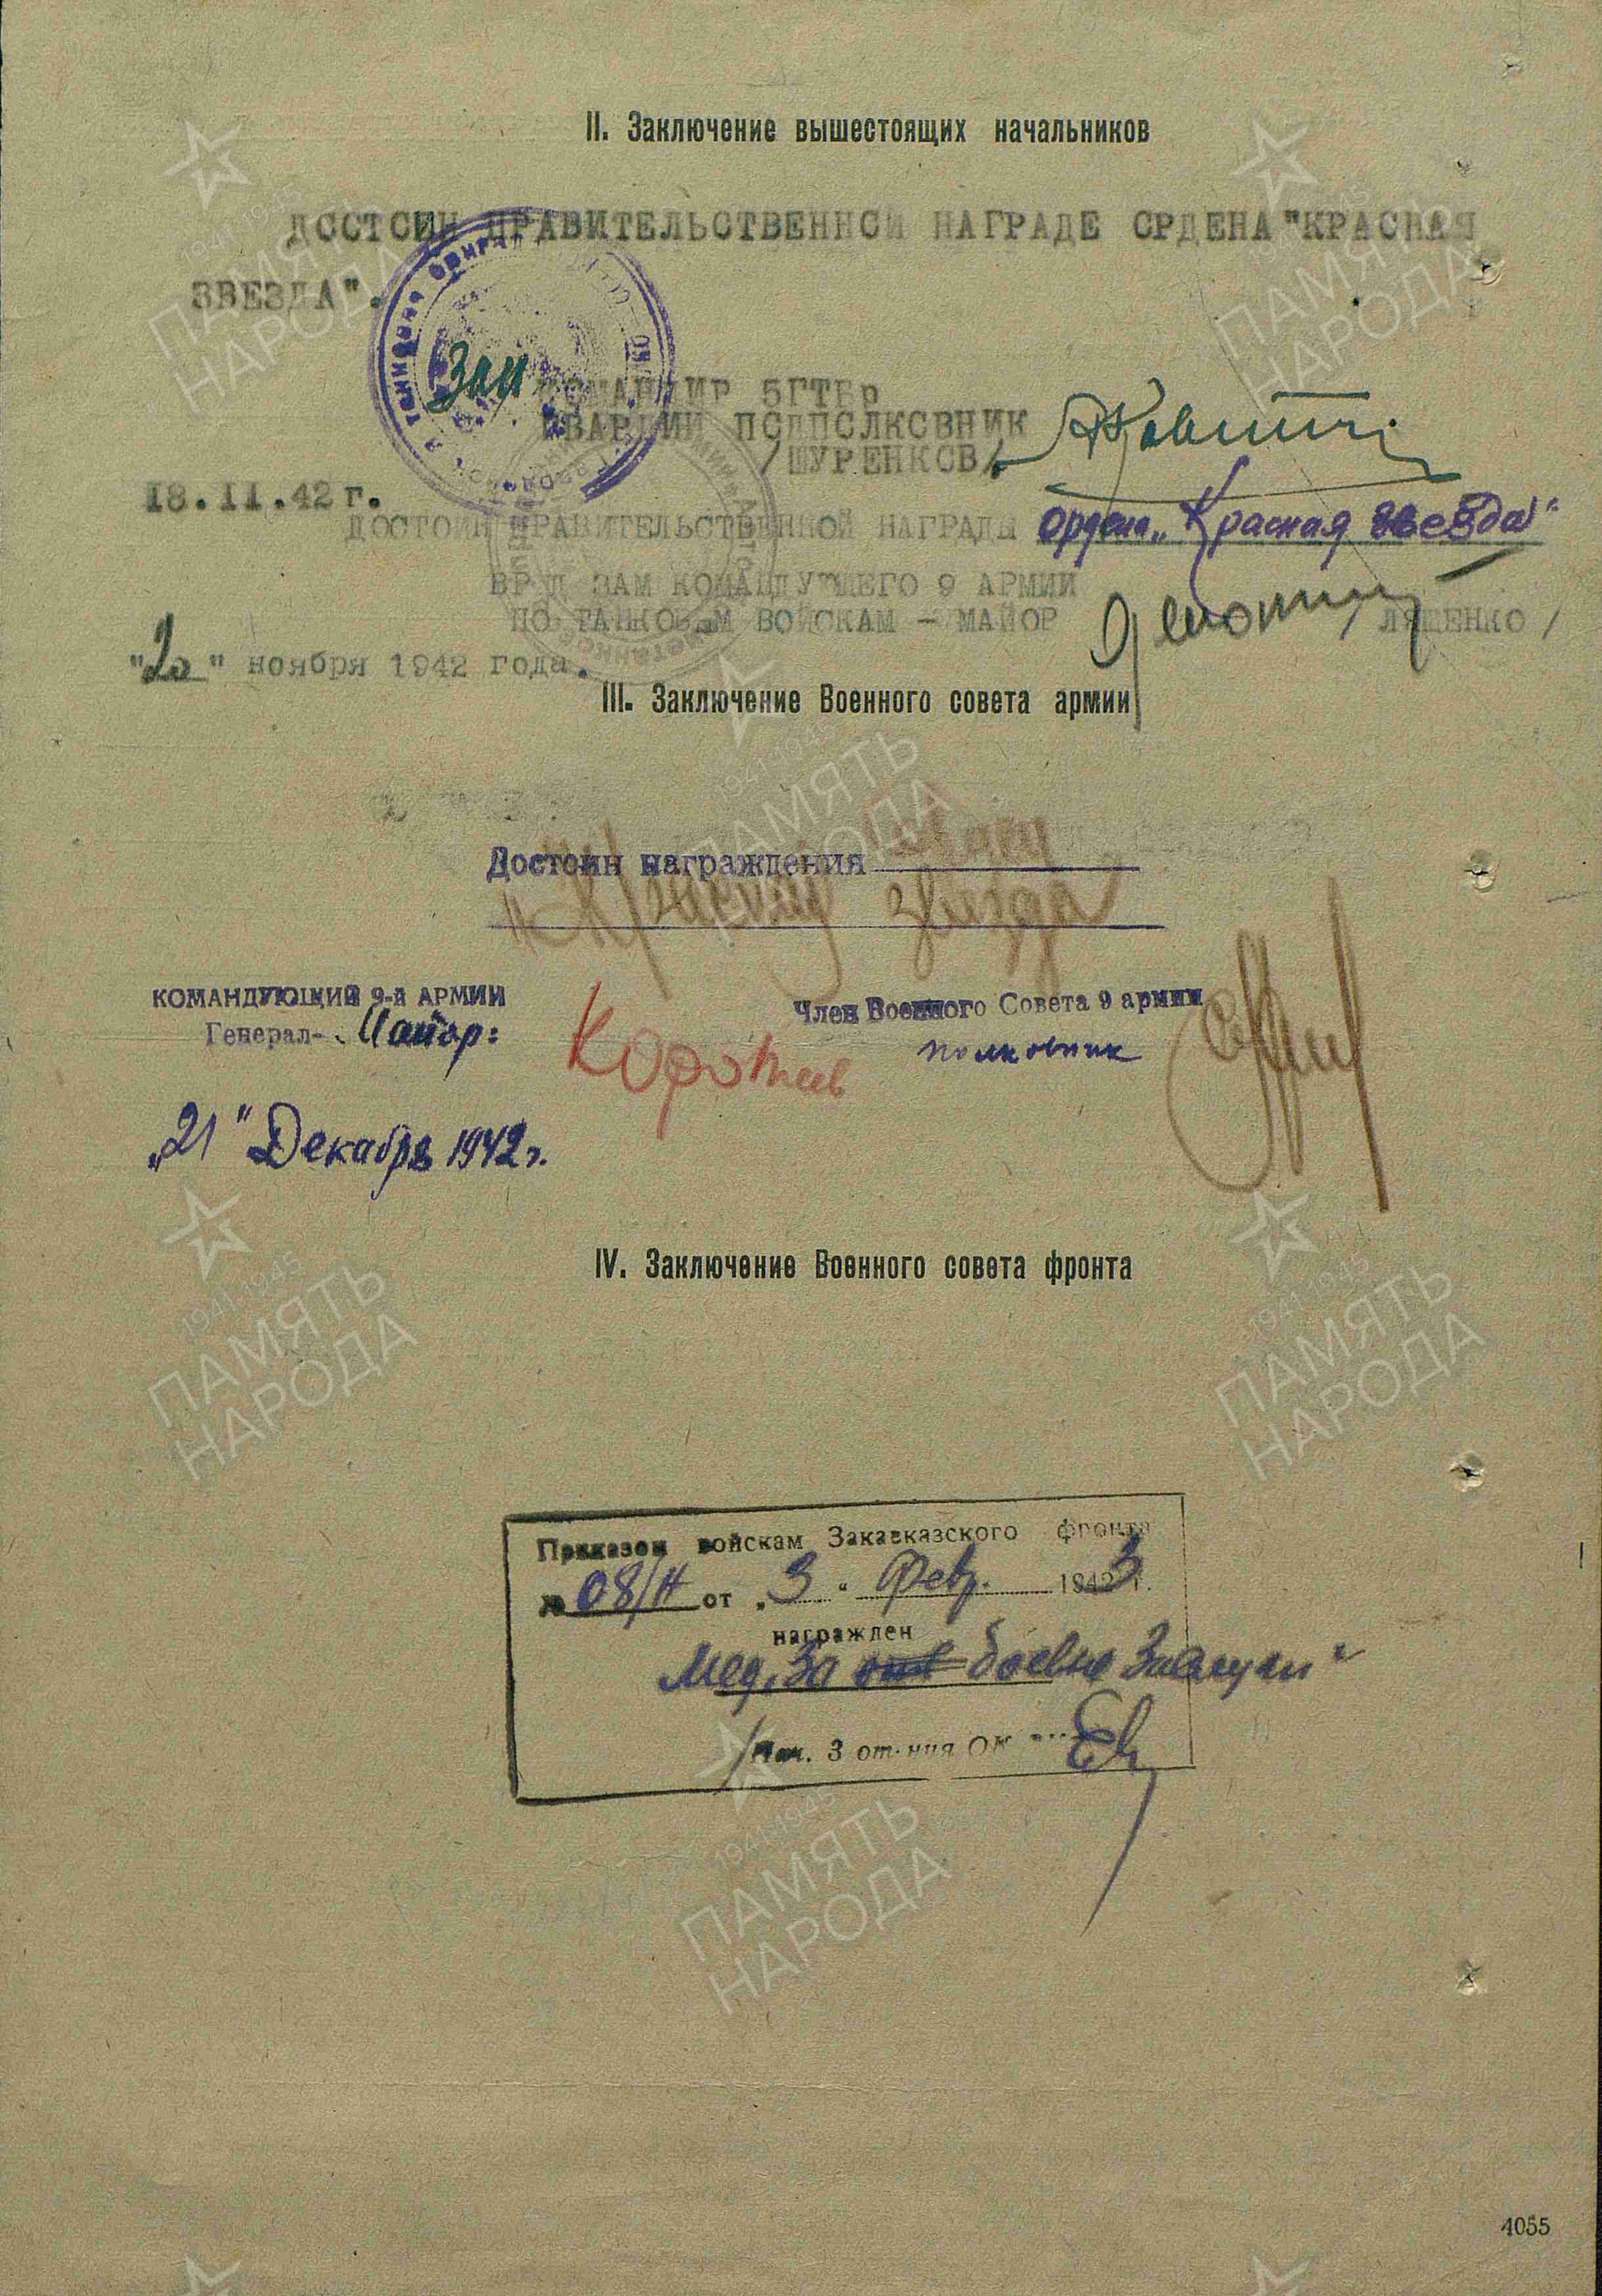 II. Заключение вышестоящих начальников
ДОСТОИН ПРАВИТЕЛЬСТВЕННОЙ НАГРАДЕ ОРДЕНА "КРАСНАЯ
ЗВЕЗДА".
Зам КОМАНДИР 5ГТБр
ГВАРДИИ ПОДПОЛКОВНИК
/ШУРЕНКОВ/
18.11.42 г.
ДОСТОИН ПРАВИТЕЛЬСТВЕННОЙ НАГРАДЫ орден "Красная звезда"
ВРИД ЗАМ КОМАНДУЮЩЕГО 9 АРМИИ
ПО ТАНКОВЫМ ВОЙСКАМ - МАЙОР / ЛЯЩЕНКО /
"20" ноября 1942 года.
III. Заключение Военного совета армии
Достоин награждения
"Красная звезда
КОМАНДУЮЩИЙ 9-й АРМИИ
Генерал-Майор:
Коротеев
Член Военного Совета 9 армии
полковник
"21" Декабря 1942 г.
IV. Заключение Военного совета фронта
Приказом войскам Закавказского фронта
№ 08/Н от "3" Февр. 1943 г.
награжден
Мед. "За боевые Заслуги"
/Нач. 3 от-ния ОК
4055
1941-1945
ПАМЯТЬ
НАРОДА